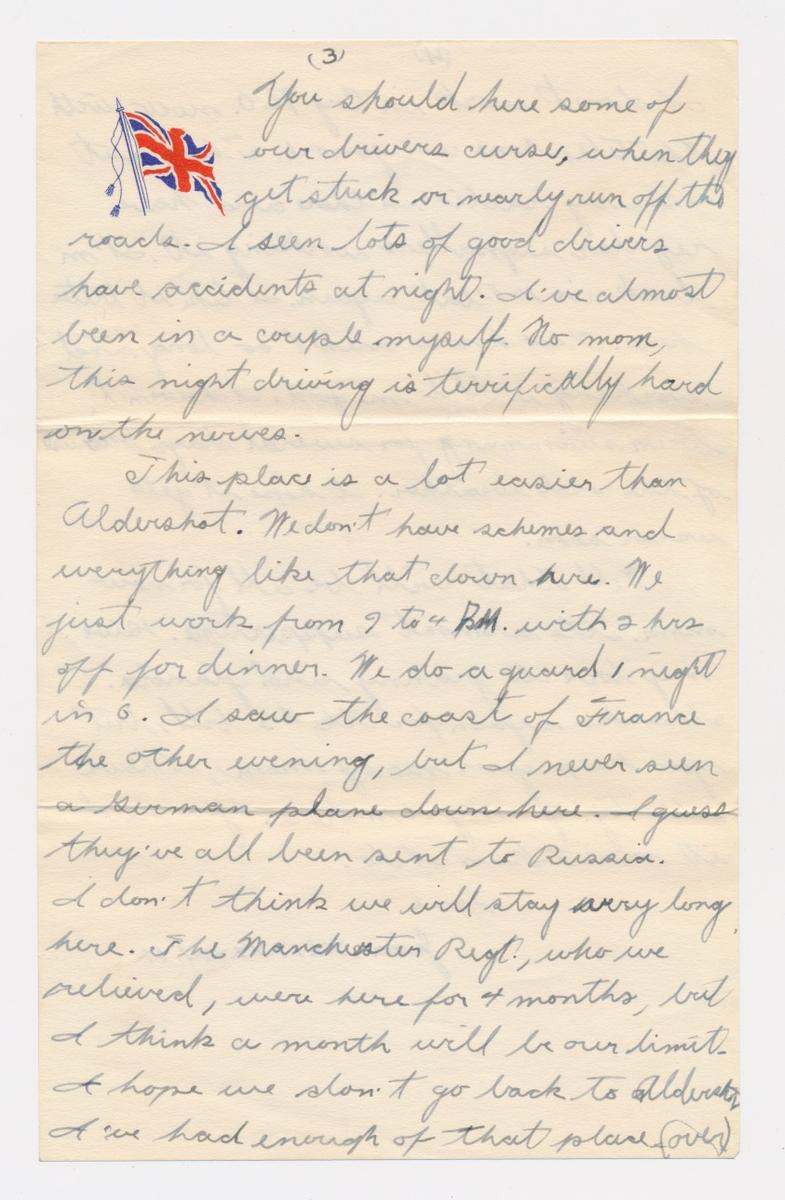 (3)
You should here some of
our drivers curse, when they
get stuck or nearly run off the
roads. I seen lots of good drivers
have accidents at night. I've almost
been in a couple myself. No mom,
this night driving is terrifically hard
on the nerves.
This place is a lot easier than
Aldershot. We don't have schemes and
everything like that down here. We
just work from 9 to 4 PM. with 2 hrs
off for dinner. We do a guard 1 night
in 6. I saw the coast of France
the other evening, but I never seen
a German plane down here. I guess
they've all been sent to Russia.
I don't think we will stay very long
here. The Manchester Regt., who we
relieved, were here for 4 months, but
I think a month will be our limit.
I hope we don't go back to Aldershot
I've had enough of that place (over)